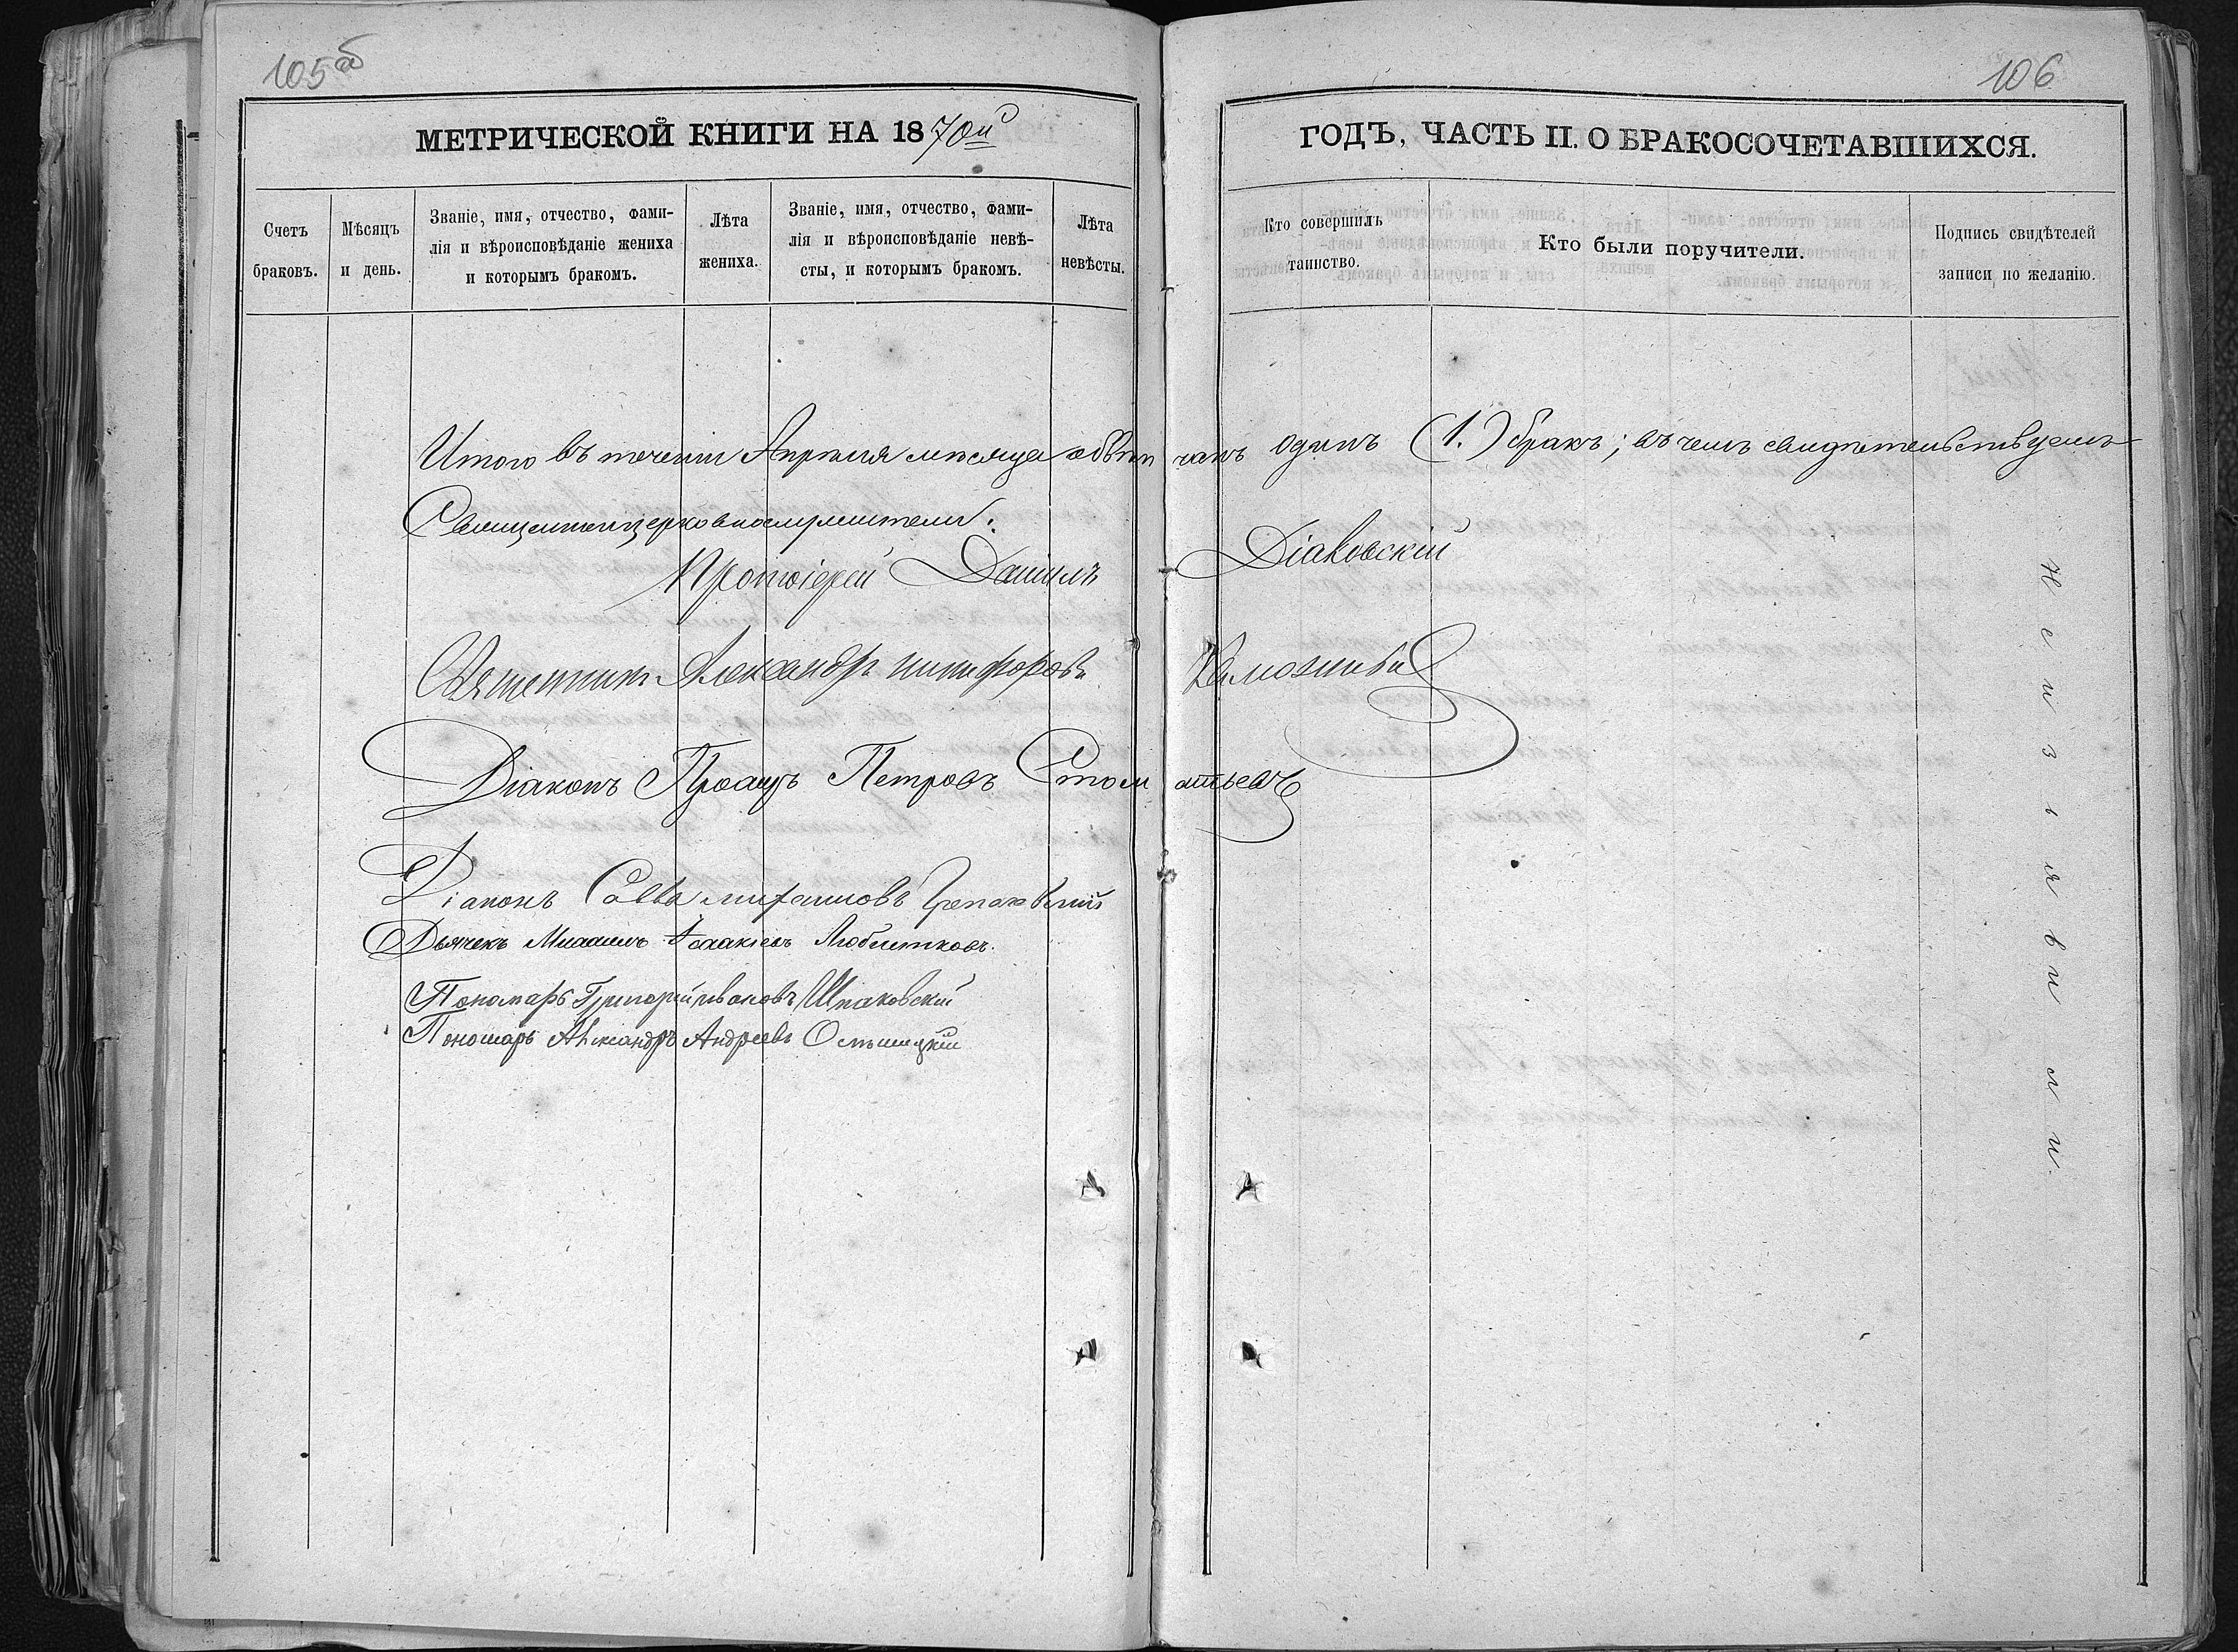 105 об
106
МЕТРИЧЕСКОЙ КНИГИ НА 1870й ГОДЪ, ЧАСТЬ II. О БРАКОСОЧЕТАВШИХСЯ.
Счетъ браковъ.
Мѣсяцъ и день.
Званіе, имя, отчество, фами-
лія и вѣроисповѣданіе жениха
и которымъ бракомъ.
Лѣта жениха.
Званіе, имя, отчество, фами-
лія и вѣроисповѣданіе невѣ-
сты, и которымъ бракомъ.
Лѣта невѣсты.
Кто совершилъ таинство.
Кто были поручители.
Подпись свидѣтелей записи по желанію.
Итого въ течении Апрѣля мѣсяца обвѣнчанъ одинъ (1.) бракъ; въ чемъ свидѣтельствуемъ
Священноцерковнослужители:
Протоіерей Даніилъ Діаковскій
Священникъ Александръ Никифоровъ
Діаконъ Петровъ
Діаконъ Савва Михаиловъ
Дьячекъ Михаилъ Исаакіевъ
Пономарь Григорій Ивановъ Шпаковскій
Пономарь Александръ Андреевъ
Не изъявили